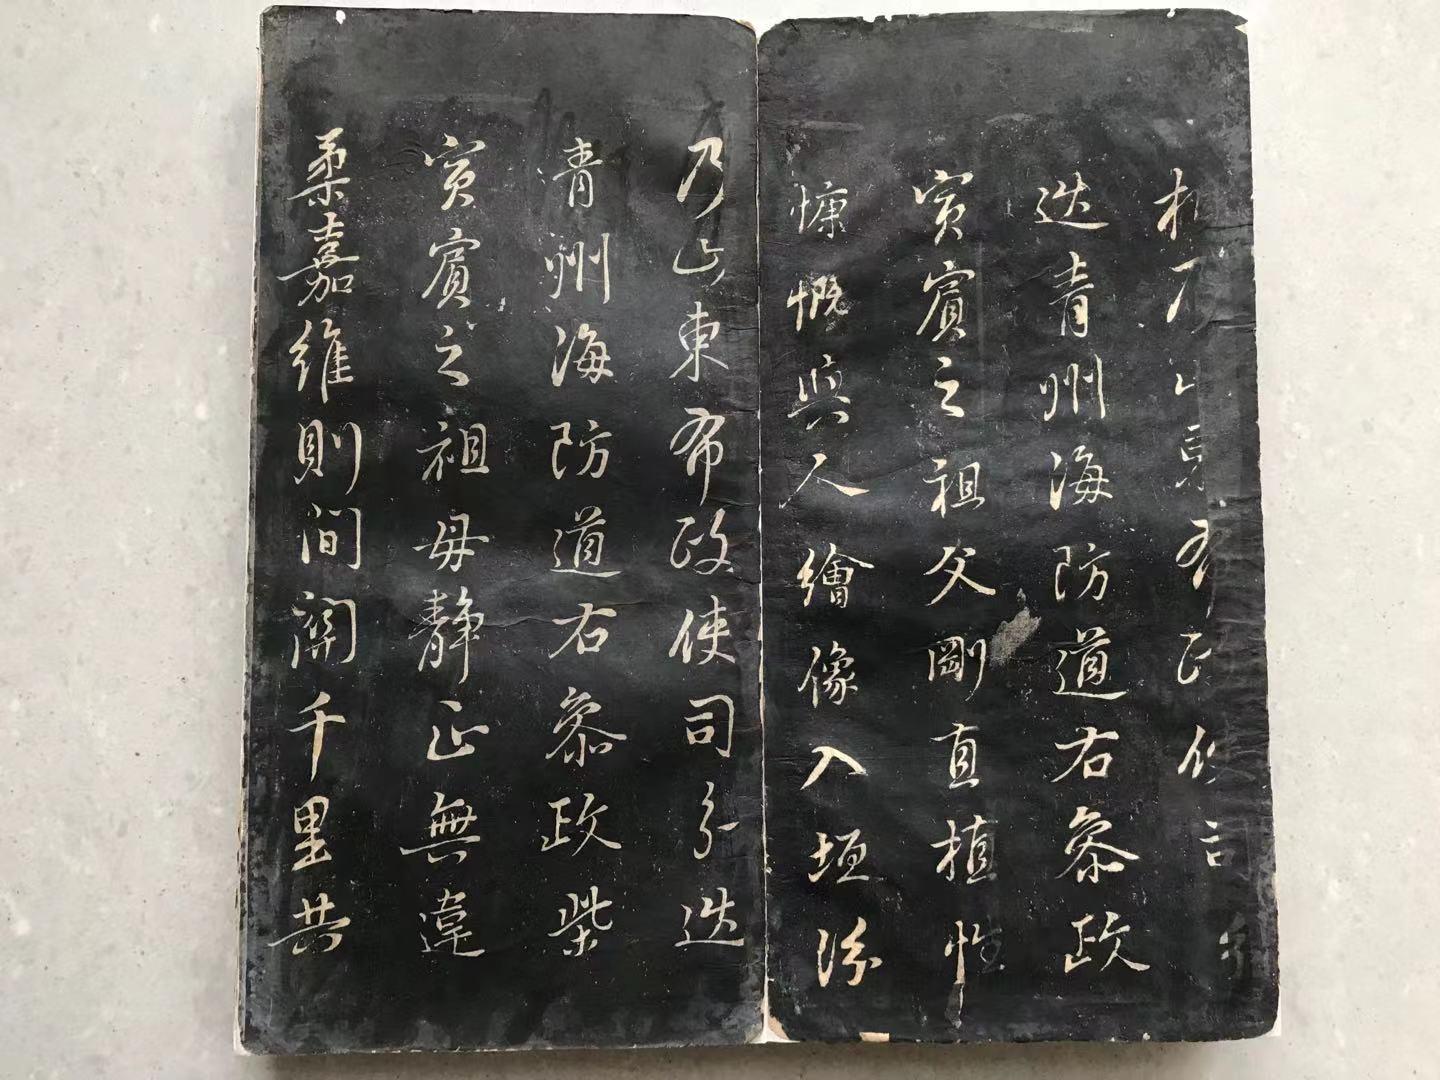 乃山東布政使司分
巡青州海防道右叅政
寅賓之祖父剛直植性
慷慨與人繪像入垣汾
乃山東布政使司分巡
青州海防道右叅政柴
寅賓之祖母静正無違
柔嘉維則間關千里共